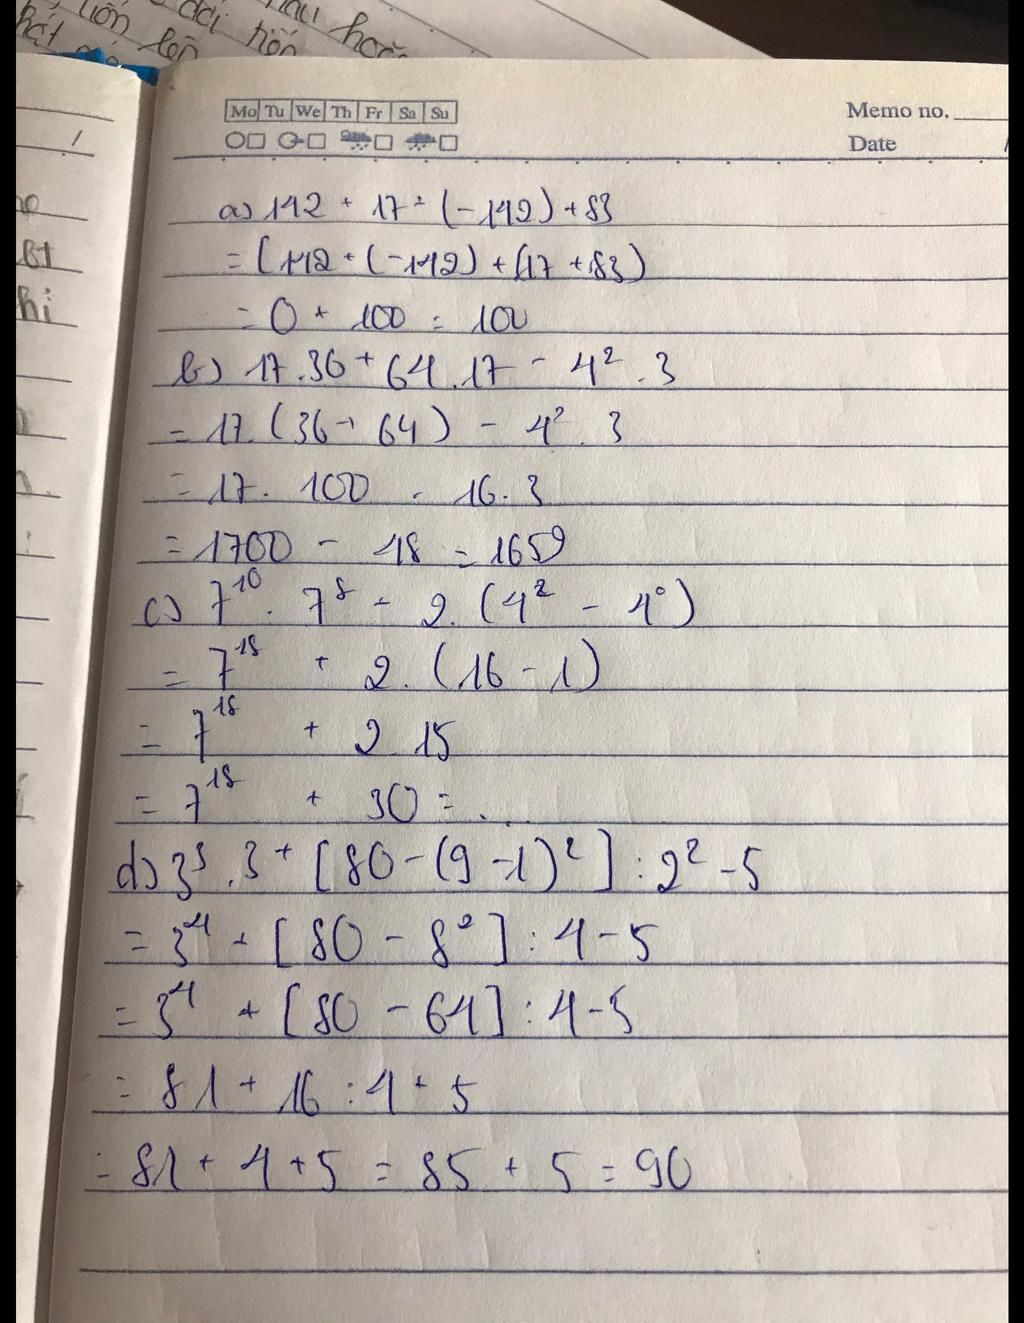 lên dài nên
hất lên hoặc
Mo Tu We Th Fr Sa Su
Memo no.
Date
a) 142 + 17 + (-142) + 83
= (142 + (-142) + (17 + 83)
= 0 + 100 = 100
b) 17.36 + 64.17 - 4² . 3
= 17.(36 + 64) - 4² . 3
= 17. 100 - 16.3
= 1700 - 48 = 1659
c) 7¹⁰. 7⁸ + 2.(4² - 4⁰)
= 7¹⁸ + 2.(16 - 1)
= 7¹⁸ + 2 15
= 7¹⁸ + 30 = ...
d) 3³.3 + [80-(9-1)²] : 2² - 5
= 3⁴ + [80 - 8²] : 4 - 5
= 3⁴ + [80 - 64] : 4 - 5
= 81 + 16 : 4 + 5
= 81 + 4 + 5 = 85 + 5 = 90